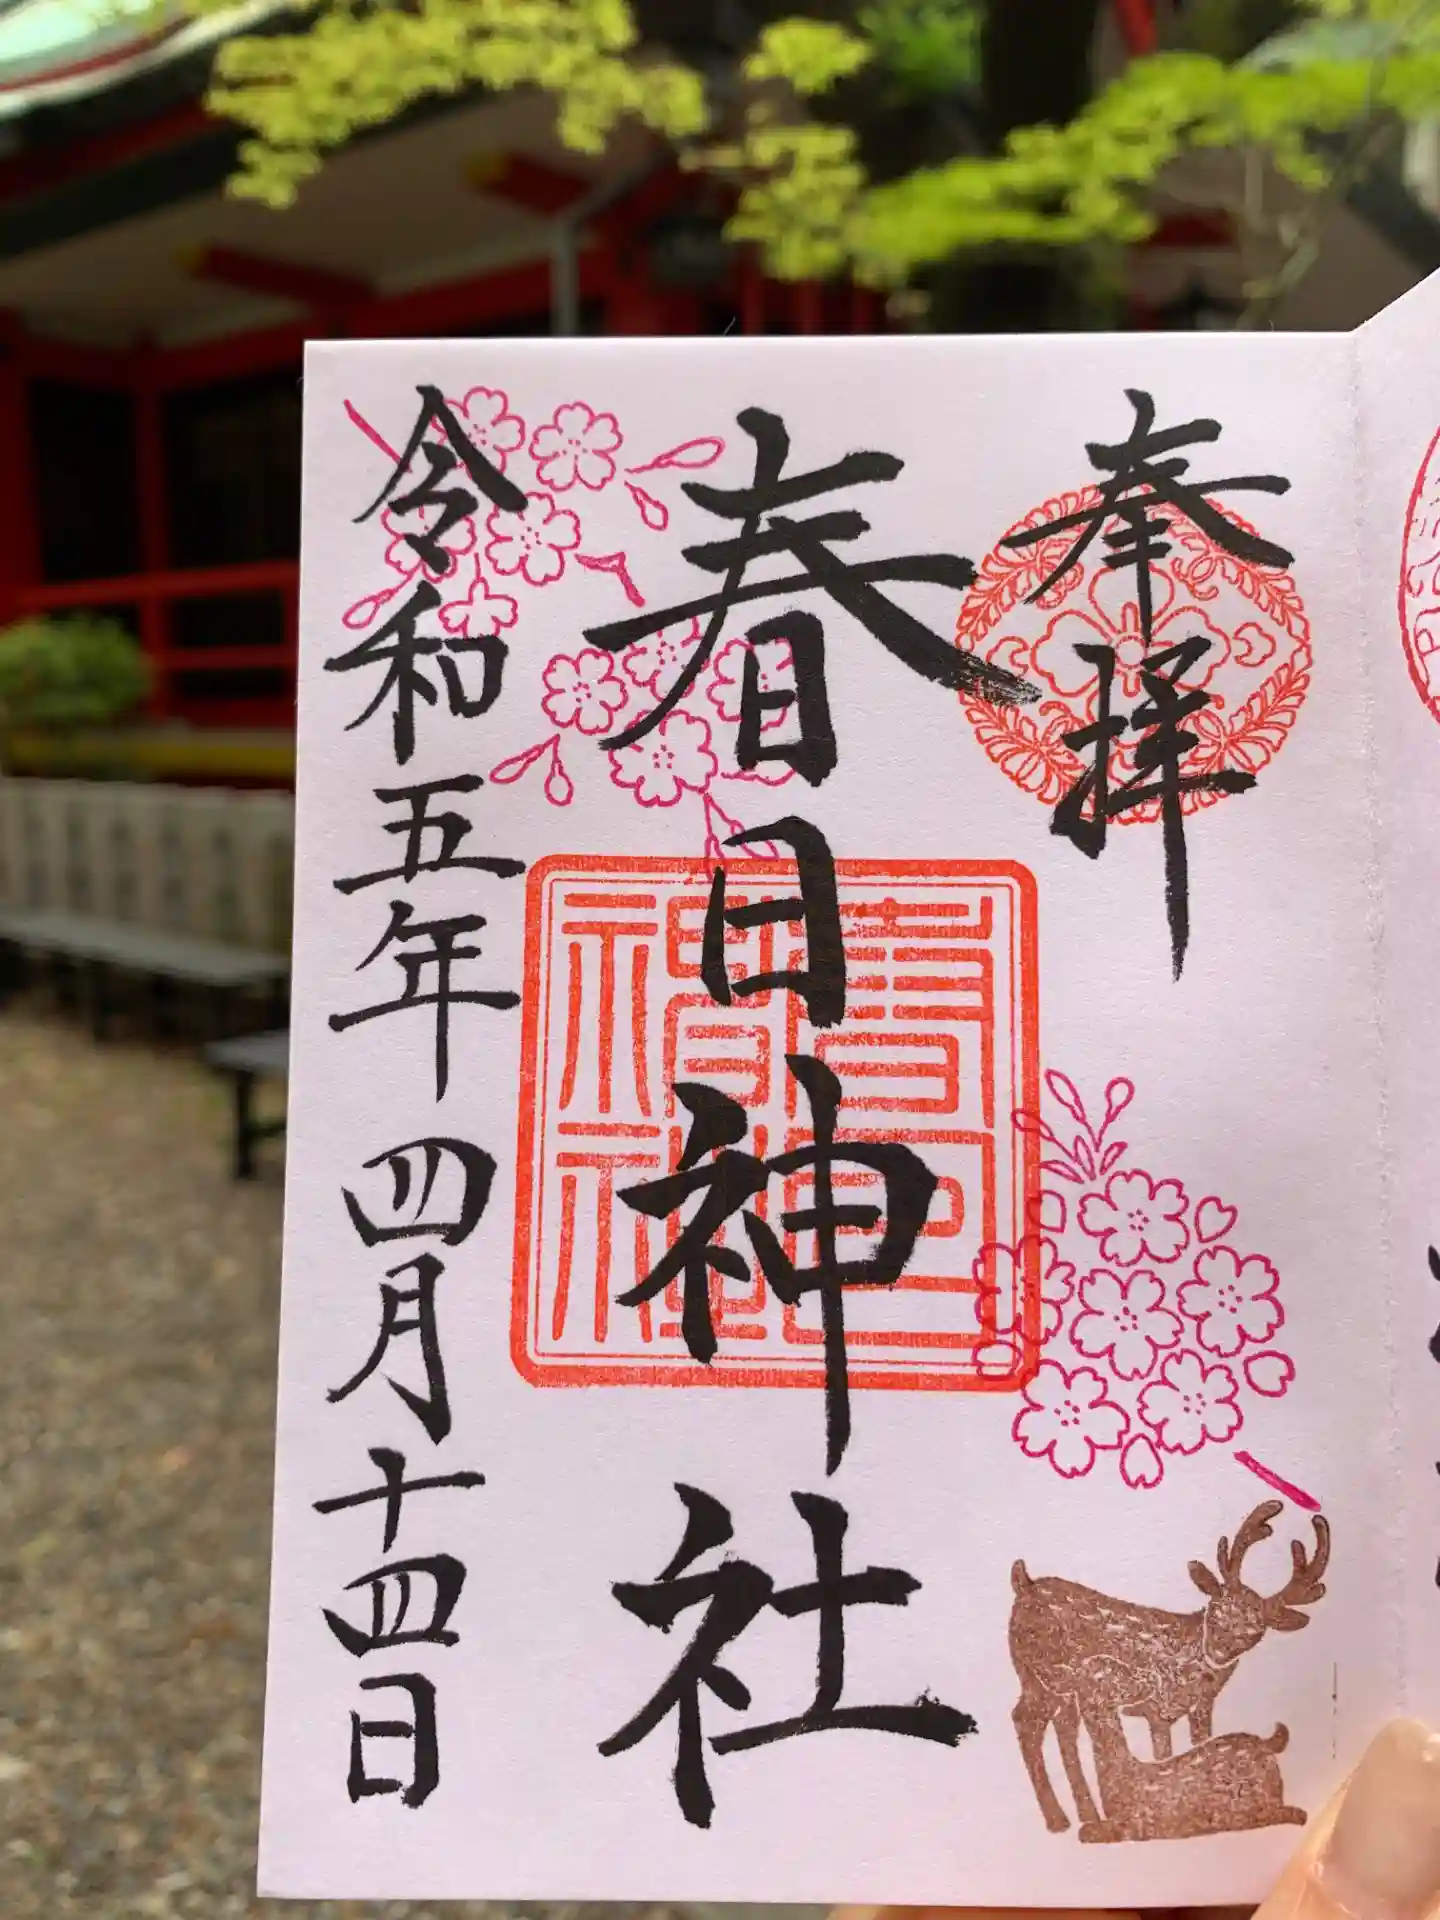 奉拝
春日神社
春日神社
令和五年四月十四日